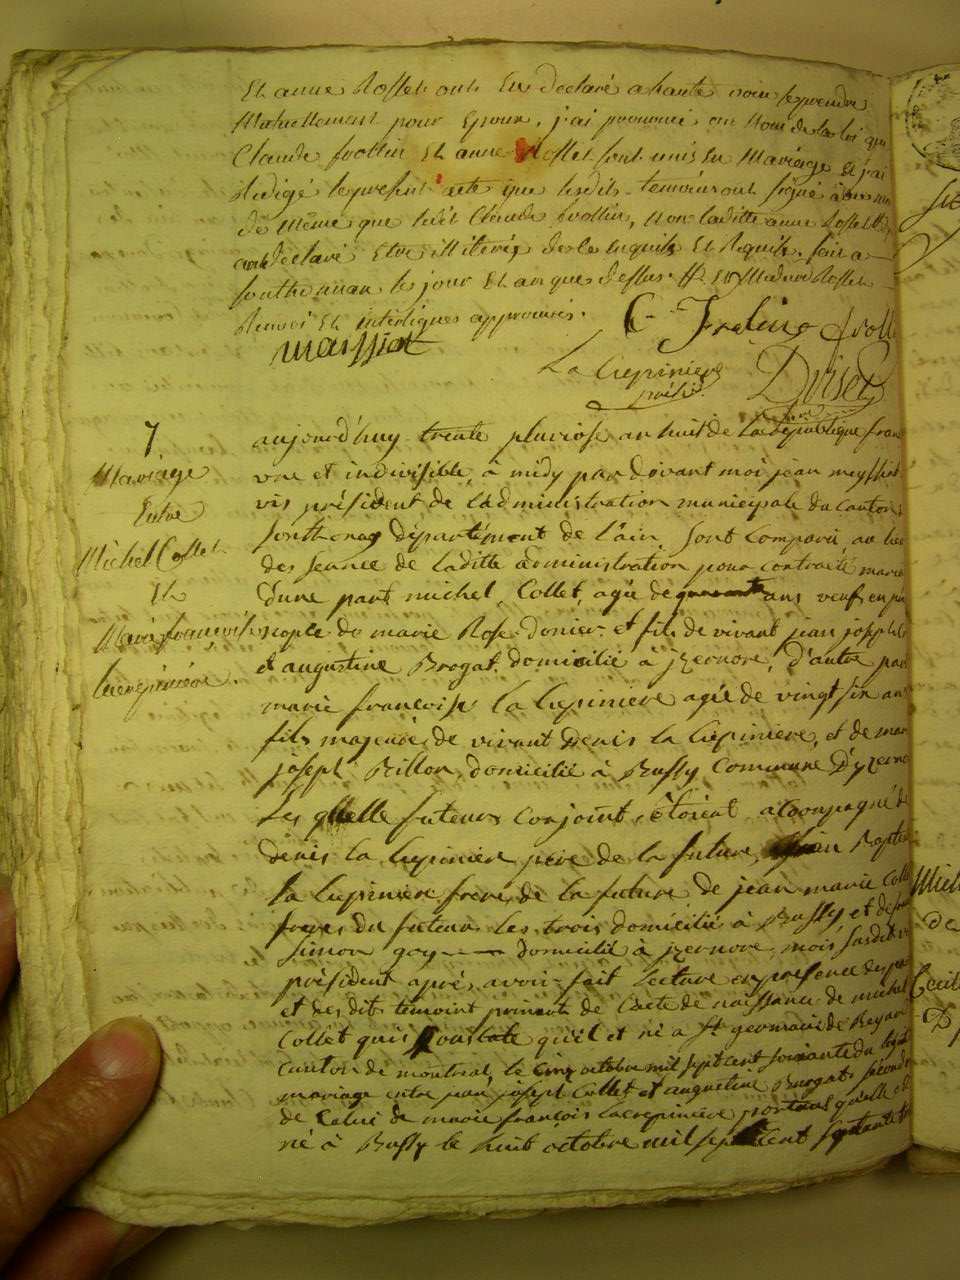 Et anne Rosset ont Eu declaré a haute voix se prendre
Mutuellement pour Epoux, j'ai prononcé au Nom de la loi que
Claude frollin Et anne Rosset sont unis En Mariage Et j'ai
Redigé le present acte que lesdits temoins ont signé avec moi
de Même que ledit Claude frollin, Non laditte anne Rosset
declaré Etre illiterée de ce Enquise Et Requise, fait a
sonthonnax le jour Et an que dessus
Renvoi Et interlignes approuvés.
maissiat
La Crepiniere
7
Mariage
Entre
Michel Collet
Et
Marie francoise
lacrepiniere.
aujourd'huy trente pluviose an huit de la republique fran
une et indivisible, a midy par devant moi jean meyssiat
vis président de l'administration municipale du canton
sonthonay département de l'ain, sont comparu, au lieu
des seance de laditte administration pour contracté maria
d'une part michel Collet, agée de quarante ans veuf en pre
nople de marie Rose donier et fils de vivant jean joseph
et augustine Brogat domicilié à jzernore, d'autre part
marie françoise la Crepiniere agée de vingt six an
fils majeure de vivant Denis la Crepiniere, et de mar
joseph Billon, domicilié à Bussy commune d'yzerno
Les quelle futeurs conjoint étoient accompagné de
denis la Crepiniere père de la future, jean Baptis
la Crepiniere frere de la future de jean marie Coll
freres du futeur les trois domicilié à Bussy, et de
simon goy domicilié à jzernore, mois susdit vi
président aprés avoir fait lecture en presence des par
et des dit temoint primo de l'acte de naissance de michel
Collet qui constate qu'il et né a St germain de Beyna
canton de montreal, le cinq octobre mil sept cent soixante du legit
mariage entre jean joseph Collet et augustine Brogat, second
de Celui de marie françois Lacrepiniere portant qu'elle et
né à Bussy le huit octobre mil sept cent septante